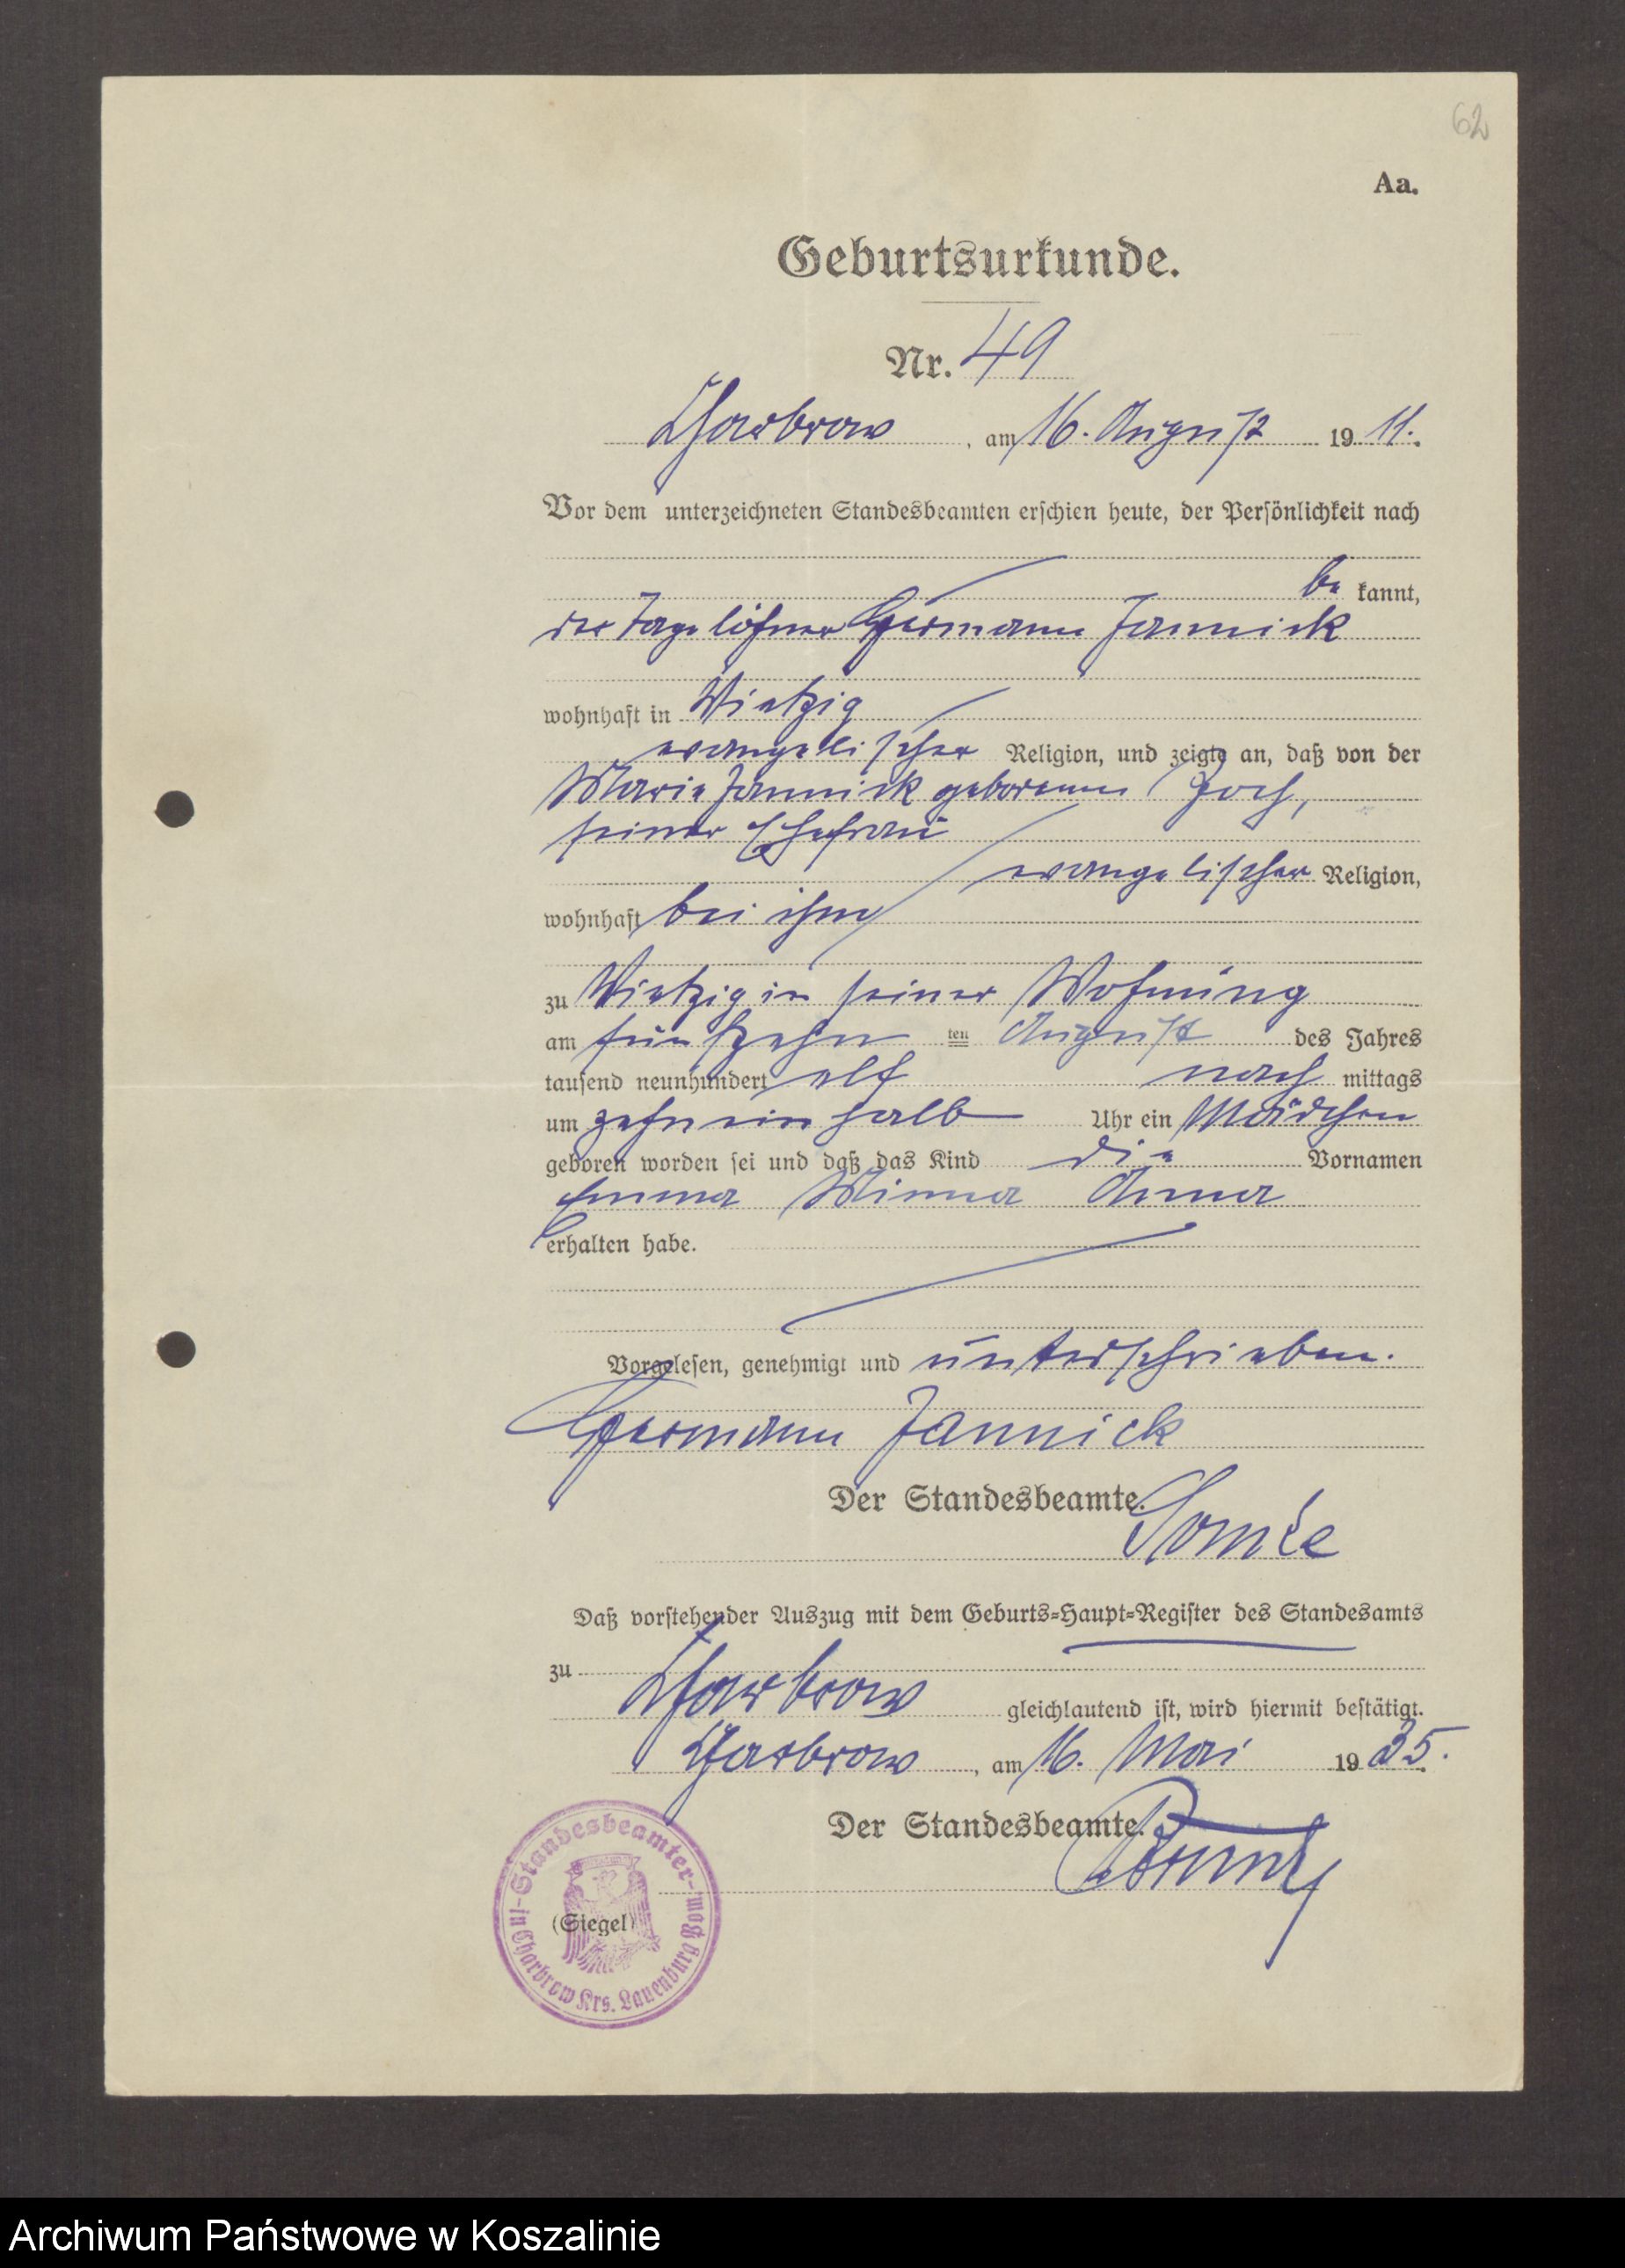 62
Aa.
Geburtsurkunde.
Nr. 49
Charbrow, am 16. August 1911.
Vor dem unterzeichneten Standesbeamten erschien heute, der Persönlichkeit nach
be kannt,
der Tagelöhner Hermann Jannick
wohnhaft in Vietzig
evangelischer Religion, und zeigte an, daß von der
Marie Jannick geborenen Joch,
seiner Ehefrau
evangelischer Religion,
wohnhaft bei ihm
zu Vietzig in seiner Wohnung
am fünfzehn ten August des Jahres
tausend neunhundert elf nach mittags
um zehneinhalb Uhr ein Mädchen
geboren worden sei und daß das Kind die Vornamen
Emma Minna Anna
erhalten habe.
Vorgelesen, genehmigt und unterschrieben.
Hermann Jannick
Der Standesbeamte.
Daß vorstehender Auszug mit dem Geburts-Haupt-Register des Standesamts
zu
Charbrow gleichlautend ist, wird hiermit bestätigt.
Charbrow, am 16. Mai 1935.
Der Standesbeamte.
(Siegel)
-Standesbeamter-
-in Charbrow Krs. Lauenburg Pom.
Archiwum Państwowe w Koszalinie